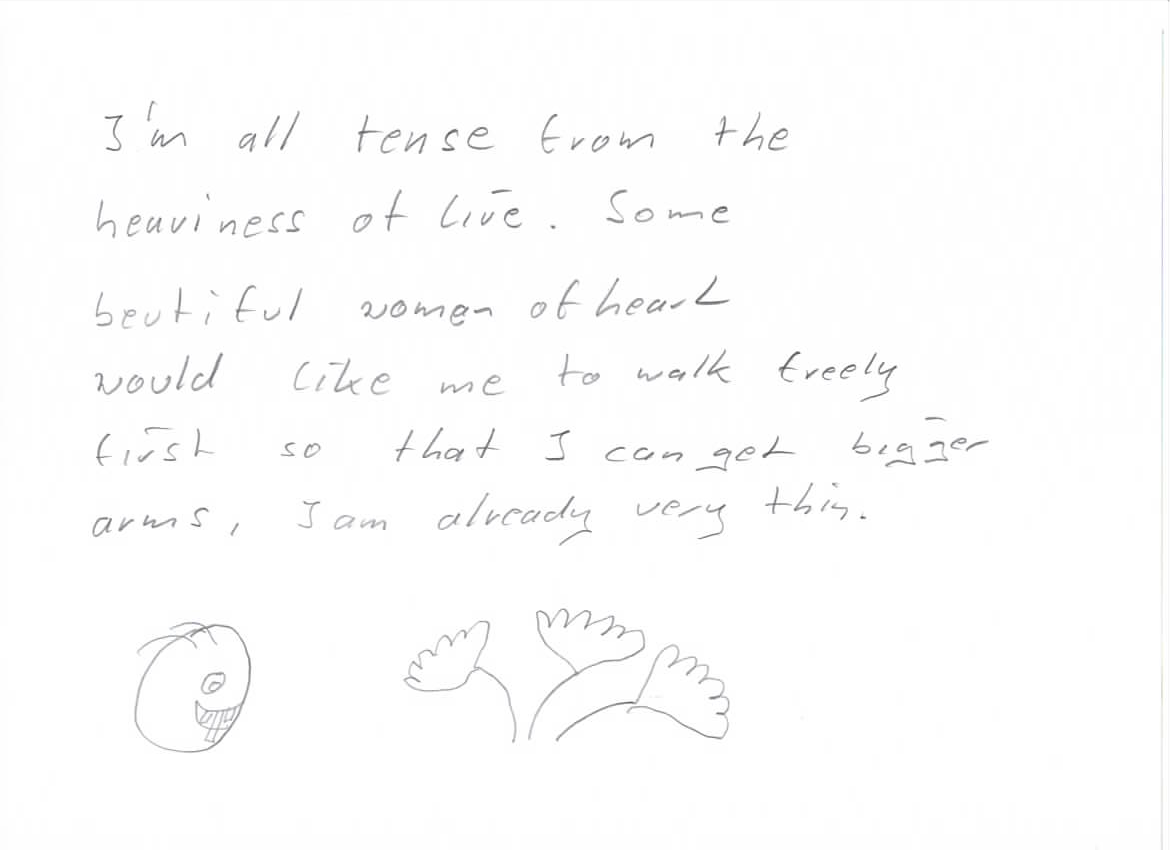 I'm all tense from the
heaviness of live. Some
beutiful women of heart
would like me to walk freely
first so that I can get bigger
arms, I am already very thin.